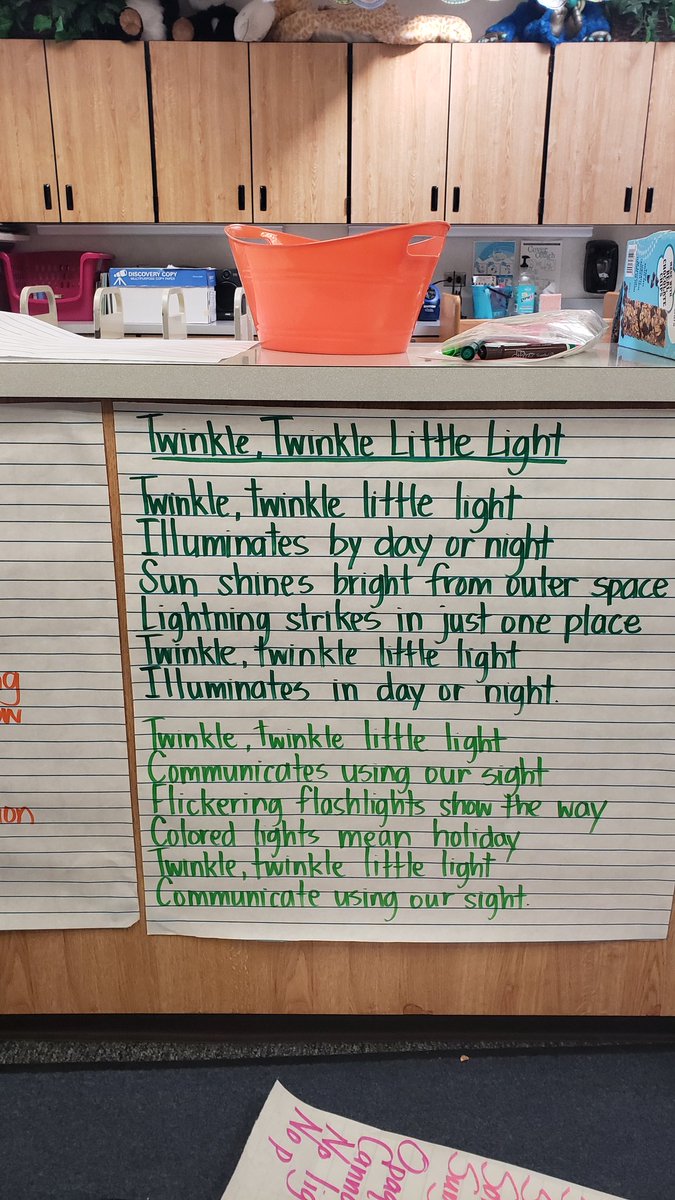 DISCOVERY COPY
MULTIPURPOSE COPY PAPER
Cover
Cough
Twinkle, Twinkle Little Light
Twinkle, twinkle little light
Illuminates by day or night
Sun shines bright from outer space
Lightning strikes in just one place
Twinkle, twinkle little light
Illuminates in day or night.
Twinkle, twinkle little light
Communicates using our sight
Flickering flashlights show the way
Colored lights mean holiday
Twinkle, twinkle little light
Communicate using our sight.
No
No